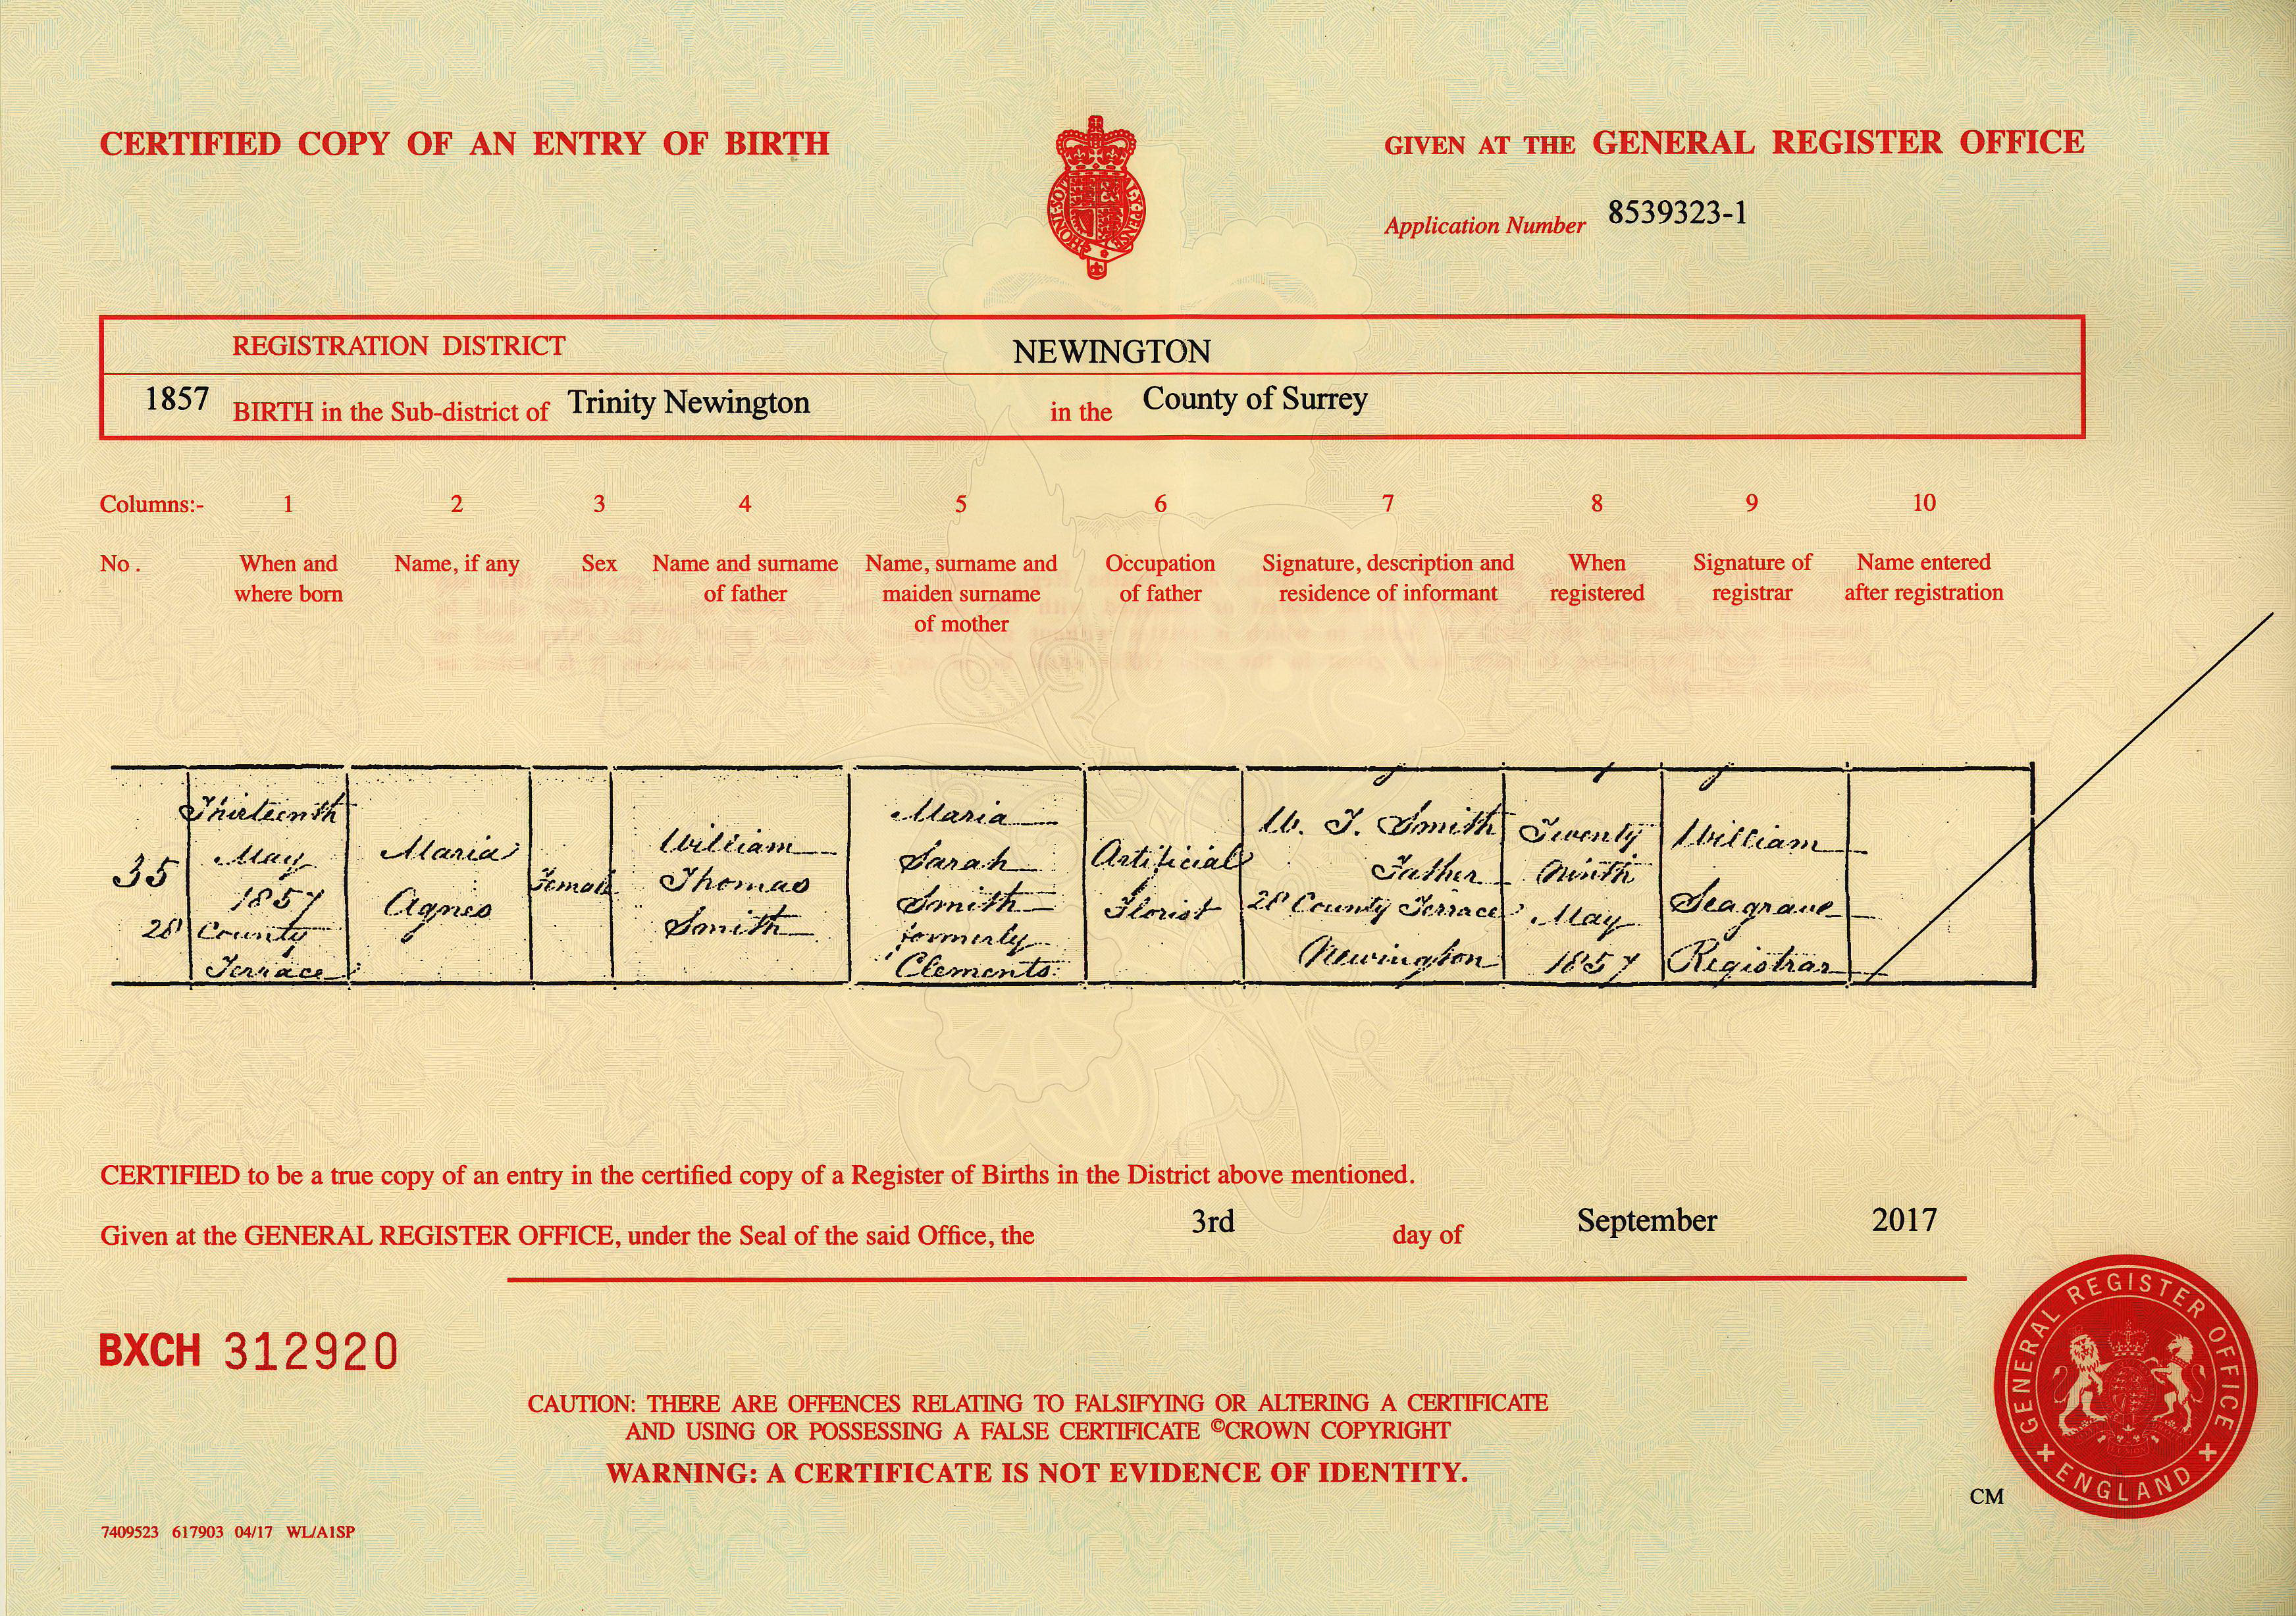 CERTIFIED COPY OF AN ENTRY OF BIRTH
GIVEN AT THE GENERAL REGISTER OFFICE
Application Number 8539323-1
REGISTRATION DISTRICT NEWINGTON
1857 BIRTH in the Sub-district of Trinity Newington in the County of Surrey
Columns:- 1 2 3 4 5 6 7 8 9 10
No. When and where born
Name, if any
Sex
Name and surname of father
Name, surname and maiden surname of mother
Occupation of father
Signature, description and residence of informant
When registered
Signature of registrar
Name entered after registration
35
Thirteenth
May
1857
28 County
Terrace
Maria
Agnes
Female
William
Thomas
Smith
Maria
Sarah
Smith
formerly
Clements
Artificial
Florist
W. T. Smith
Father
28 County Terrace
Newington
Twenty
Ninth
May
1857
William
Seagrave
Registrar
CERTIFIED to be a true copy of an entry in the certified copy of a Register of Births in the District above mentioned.
Given at the GENERAL REGISTER OFFICE, under the Seal of the said Office, the 3rd day of September 2017
BXCH 312920
CAUTION: THERE ARE OFFENCES RELATING TO FALSIFYING OR ALTERING A CERTIFICATE
AND USING OR POSSESSING A FALSE CERTIFICATE ©CROWN COPYRIGHT
WARNING: A CERTIFICATE IS NOT EVIDENCE OF IDENTITY.
GENERAL REGISTER OFFICE
ENGLAND
CM
7409523 617903 04/17 WL/A1SP